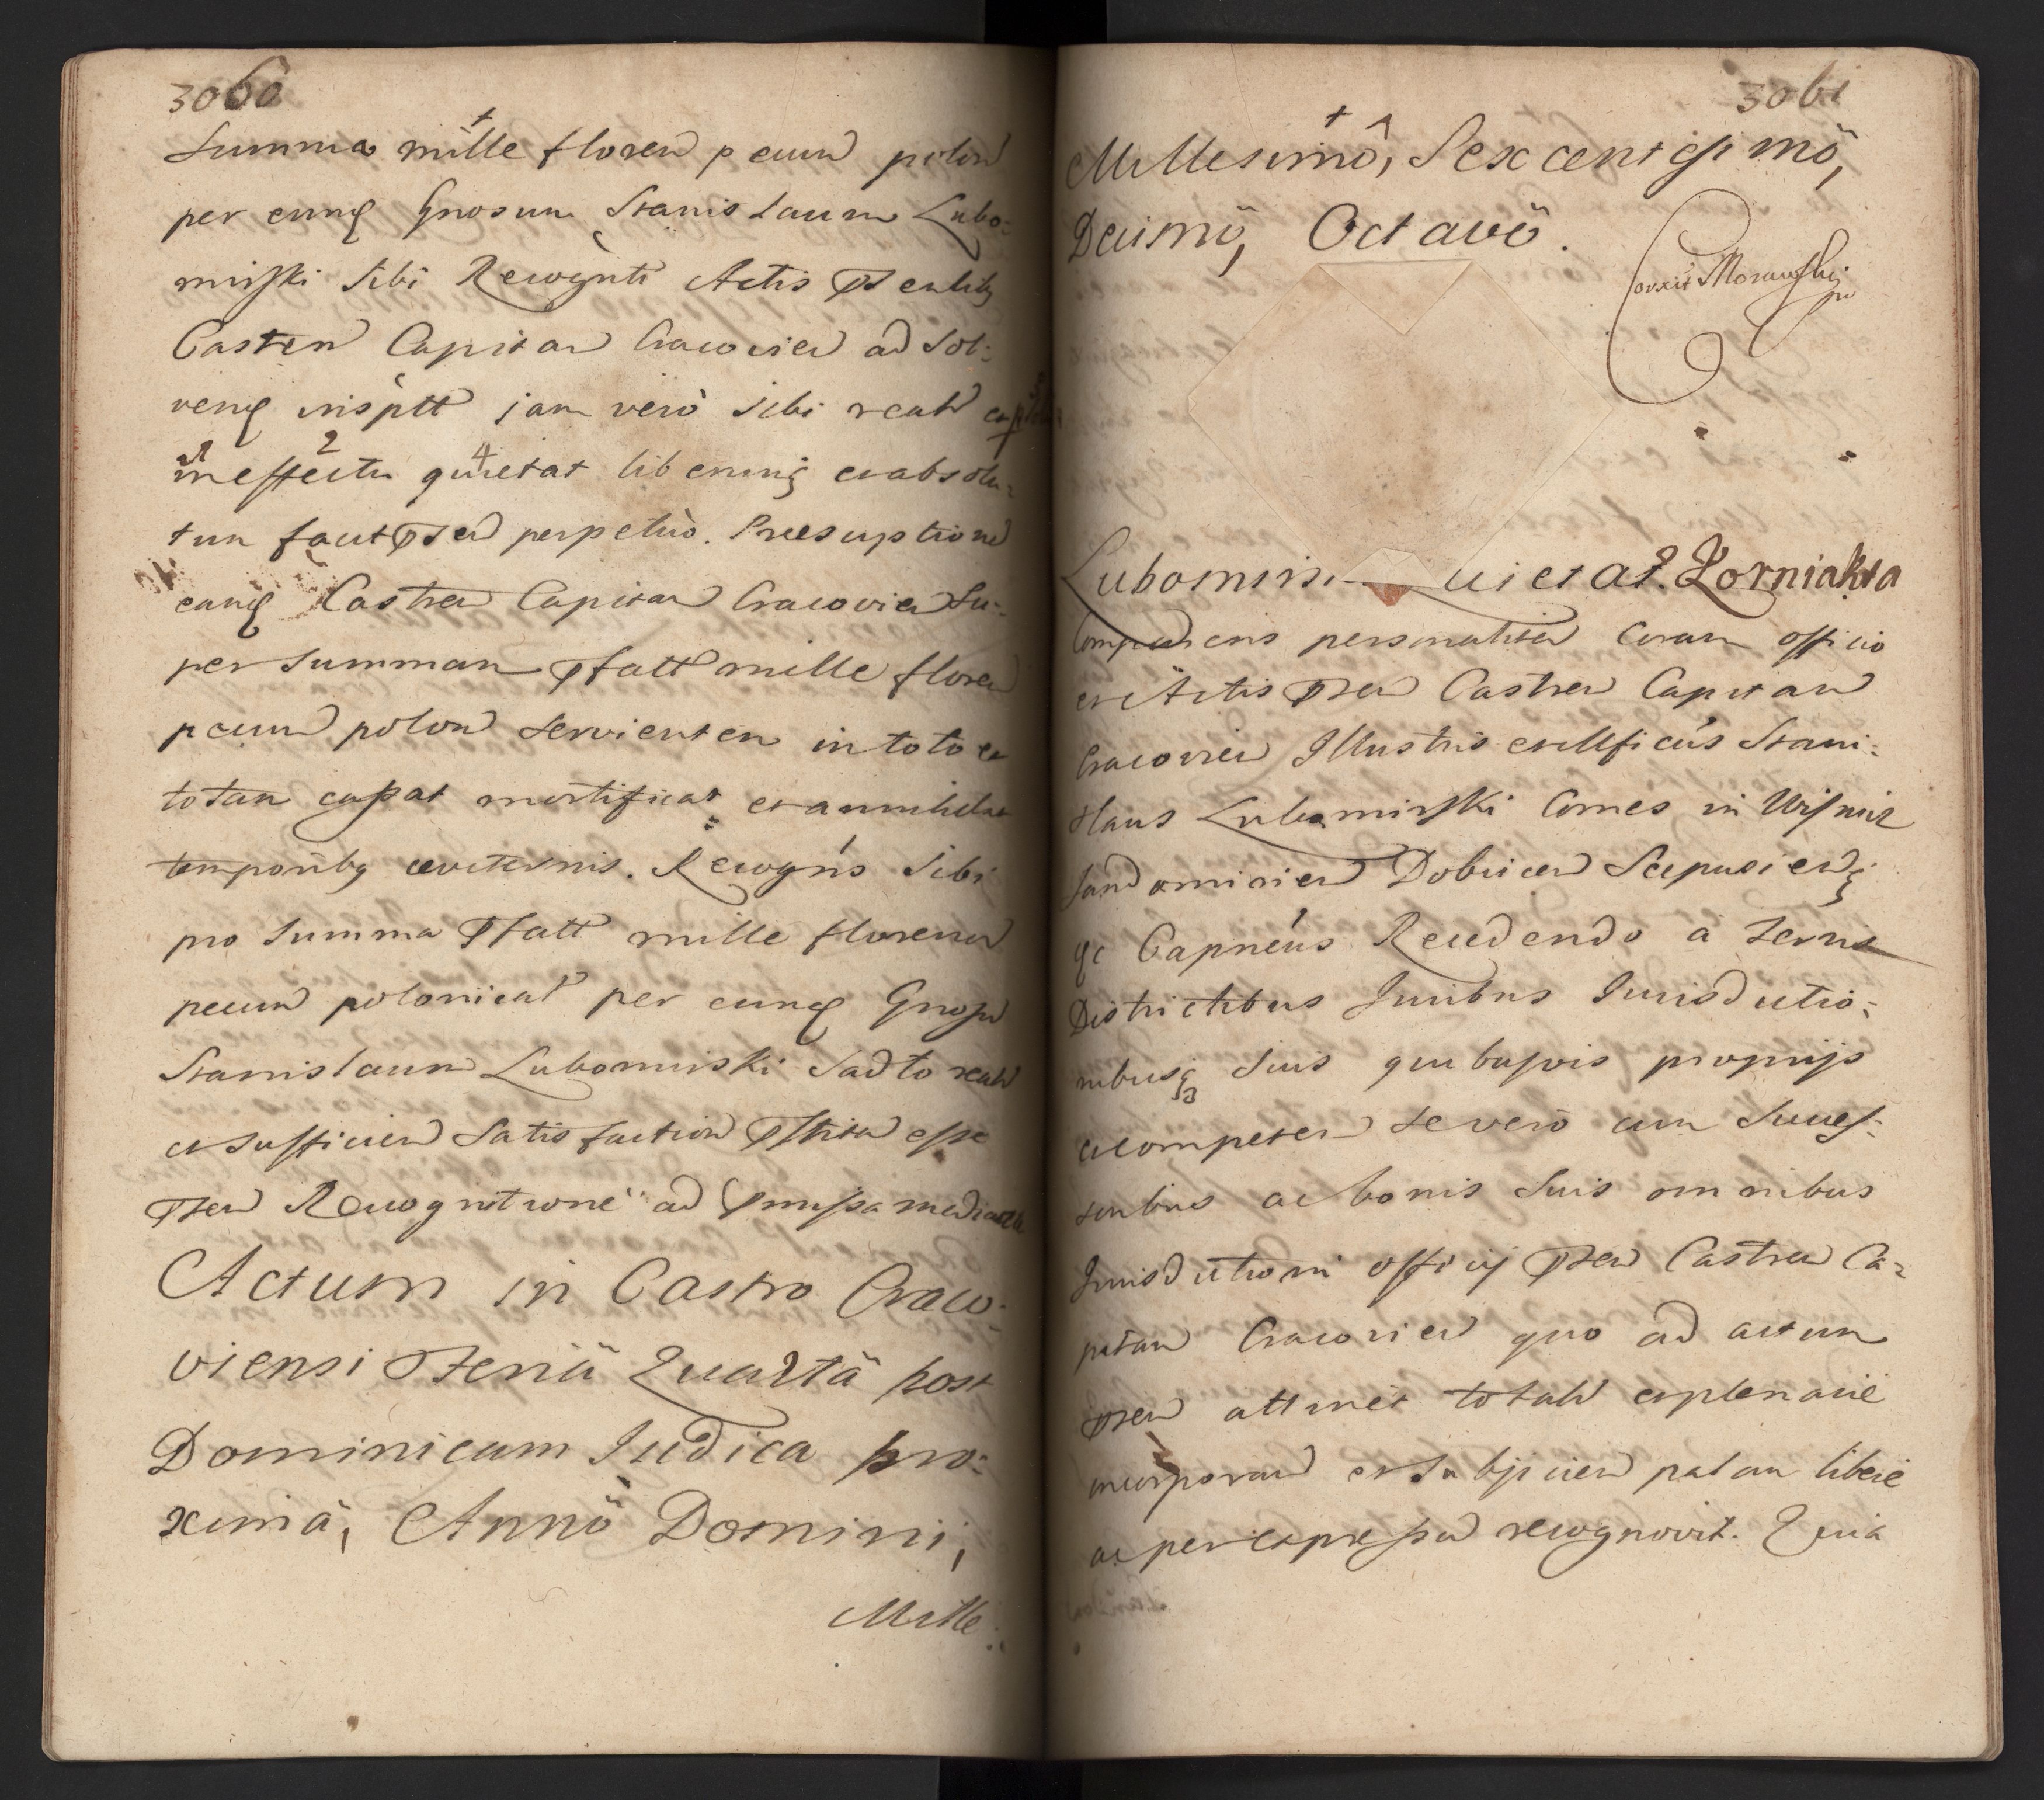 3060
Summa mille floren pecun polon
per eunq Gnosum Stanislaum Lubo:
mirski sibi Recognti Actis Psentibq
Castren Capitan Cracovien ad Sol:
venq insptt jam vero sibi realr
in effectu quietat liberumq et absolu:
tum facit Psen perpetuo. Prescriptionem
eanq Castren Capitan Cracovien Su:
per Summam Pfatt mille floren
pecun polon servientem in toto et
totam cassat mortificat et annihilat
temporibq aeviternis. Recogns sibi
pro Summa Pfatt mille florenor
pecun polonical per eunq Gnosu
Stanislaum Lubomirski Sad to realr
et sufficien Satisfaction Pstita esse
Psen Recognitione ad Pmissa mediante
Actum in Castro Craco:
viensi Feria Quarta post
Dominicam Judica pro:
xima, Anno Domini,
Mille:
3061
Millesimo, Sexcentesimo,
Decimo, Octavo.
Corxit Morawski
Lubomirs uietat. Zorniakta
Comparens personaliter Coram officio
et Actis Psen Castren Capitan
Cracovien Illustris et Mficus Stani:
slaus Lubomirski Comes in Wisnicz
Sandomirien Dobricen Scepusienq
qc Capneus Recedendo a Terris
Districtibus Juribus Jurisdictio:
nibusq suis quibusvis proprijs
et competen se vero cum Succes:
soribus ac bonis suis omnibus
Jurisdictioni officij Psen Castren Ca:
pitan Cracovien quo ad actum
Psen attinet totalr et plenarie
incorporand et subjicien palam libere
ac per expressum recognovit. Quia